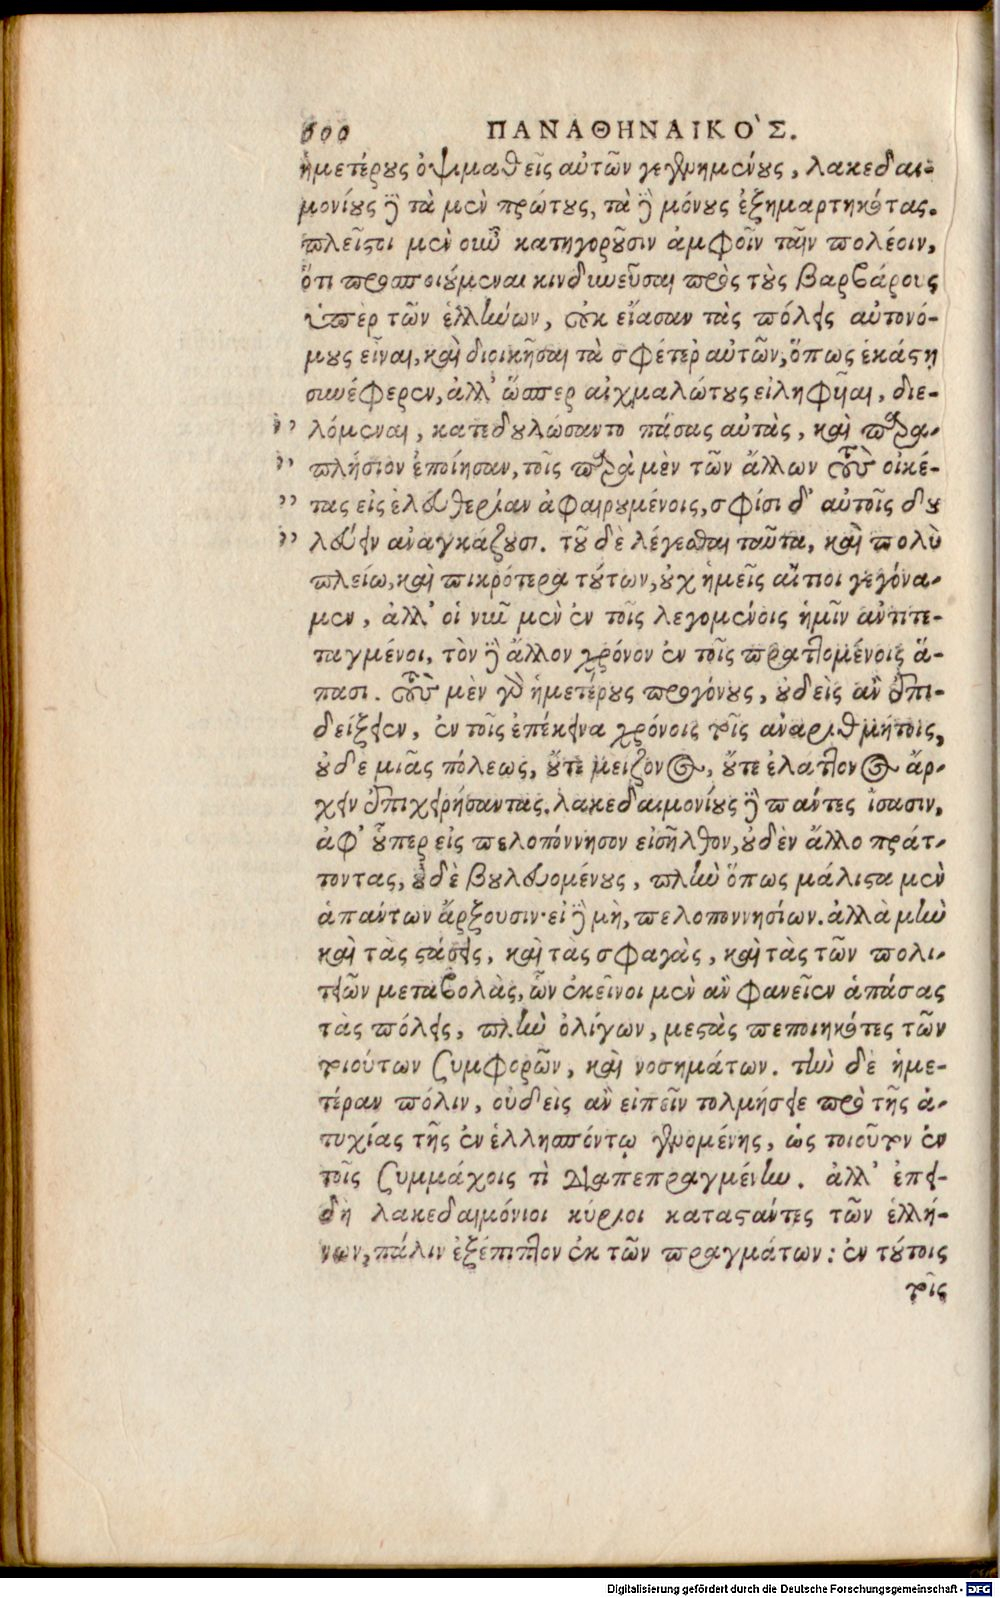 600 ΠΑΝΑΘΗΝΑΙΚΟ`Σ.
ἡμετέρους ὀψιμαθεῖς αὐτῶν γεγενημένους, λακεδαι-
μονίους δὲ τὰ μὲν πρώτους, τὰ δὲ μόνους ἐξημαρτηκότας.
πλεῖστοι μὲν οὖν κατηγοροῦσιν ἀμφοῖν ταῖν πολέοιν,
ὅτι προσποιούμεναι κινδυνεῦσαι πρὸς τοὺς βαρβάρους
ὑπὲρ τῶν ἑλλήνων, οὐκ εἴασαν τὰς πόλεις αὐτονό-
μους εἶναι, καὶ διοικῆσαι τὰ σφέτερ αὐτῶν, ὅπως ἑκάστῃ
συνέφερεν, ἀλλ' ὥσπερ αἰχμαλώτους εἰληφυῖαι, διε-
λόμεναι, κατεδουλώσαντο πάσας αὐτὰς, καὶ παρα-
πλήσιον ἐποίησαν, τοῖς παρὰ μὲν τῶν ἄλλων τοὺς οἰκέ-
τας εἰς ἐλευθερίαν ἀφαιρουμένοις, σφίσι δ' αὐτοῖς δου
λεύειν ἀναγκάζουσι. τοῦ δὲ λέγεσθαι ταῦτα, καὶ πολὺ
πλείω, καὶ πικρότερα τούτων, οὐχ ἡμεῖς αἴτιοι γεγόνα-
μεν, ἀλλ' οἱ νῦν μὲν ἐν τοῖς λεγομένοις ἡμῖν ἀντιτε-
ταγμένοι, τὸν δὲ ἄλλον χρόνον ἐν τοῖς πραττομένοις ἅ-
πασι. τοὺς μὲν γὰρ ἡμετέρους προγόνους, οὐδεὶς ἂν ἐπι-
δείξειεν, ἐν τοῖς ἐπέκεινα χρόνοις τοῖς ἀναριθμήτοις,
οὐδὲ μιᾶς πόλεως, οὔτε μείζονος, οὔτε ἐλάττονος ἄρ-
χειν ἐπιχειρήσαντας. λακεδαιμονίους δὲ πάντες ἴσασιν,
ἀφ' οὗπερ εἰς πελοπόννησον εἰσῆλθον, οὐδὲν ἄλλο πράτ-
τοντας, οὐδὲ βουλευομένους, πλὴν ὅπως μάλιστα μὲν
ἁπάντων ἄρξουσιν· εἰ δὲ μὴ, πελοποννησίων. ἀλλὰ μὴν
καὶ τὰς στάσεις, καὶ τὰς σφαγὰς, καὶ τὰς τῶν πολι-
τειῶν μεταβολὰς, ὧν ἐκεῖνοι μὲν ἂν φανεῖεν ἁπάσας
τὰς πόλεις, πλὴν ὀλίγων, μεστὰς πεποιηκότες τῶν
τοιούτων ζυμφορῶν, καὶ νοσημάτων. τὴν δὲ ἡμε-
τέραν πόλιν, οὐδεὶς ἂν εἰπεῖν τολμήσειε πρὸ τῆς ἀ-
τυχίας τῆς ἐν ἑλλησπόντῳ γενομένης, ὡς τοιοῦτον ἐν
τοῖς ζυμμάχοις τὶ διαπεπραγμένην. ἀλλ' ἐπει-
δὴ λακεδαιμόνιοι κύριοι καταστάντες τῶν ἑλλή-
νων, πάλιν ἐξέπιπτον ἐκ τῶν πραγμάτων: ἐν τούτοις
τοῖς
Digitalisierung gefördert durch die Deutsche Forschungsgemeinschaft - DFG